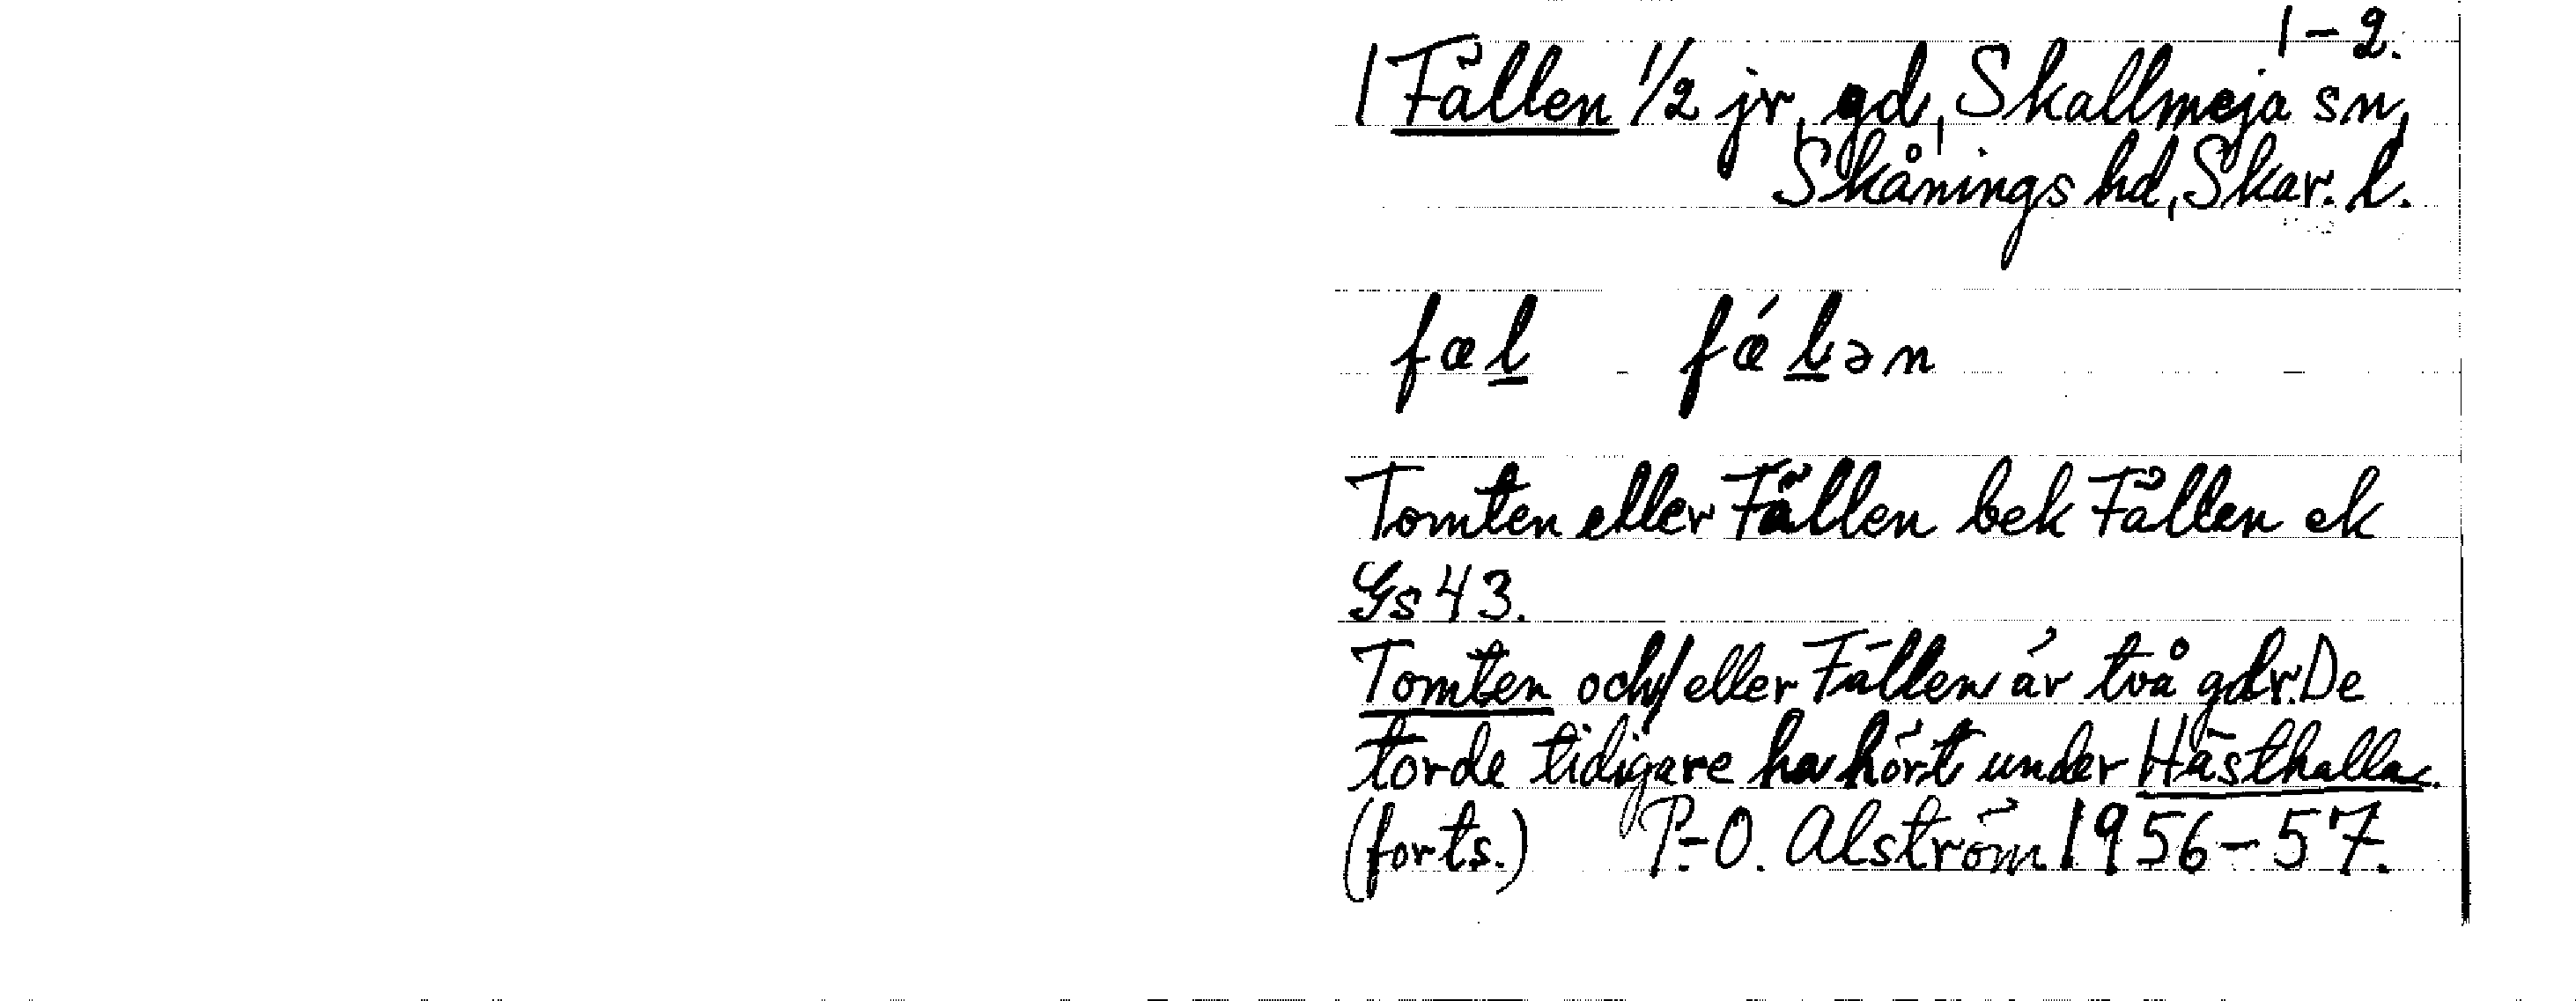 1-2.
1 Fällen 1/2 jr, gd, Skallmeja sn,
Skånings hd, Skar. l.
fæl̲ fǽl̲ən
Tomten eller Fällen bek Fällen ek
Gs 43.
Tomten och/eller Fällen är två gdr. De
torde tidigare ha hört under Hästhalla.
(forts.) P.-O. Alström 1956-57.